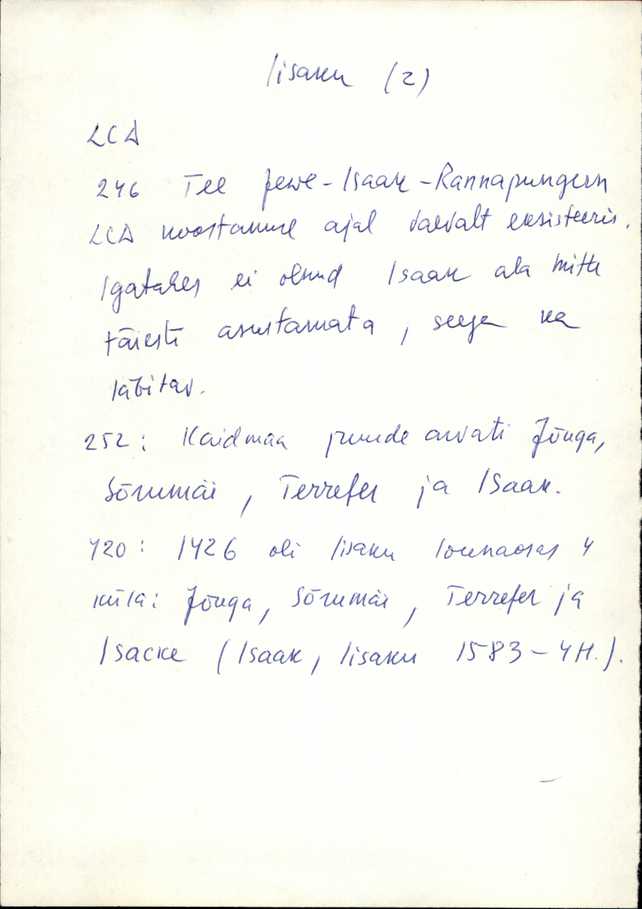 Iisaku (2)
LCD
246 Tee Jewe-Isaak-Rannapungern
LCD koostamise ajal vaevalt eksisteeris.
Igatahes ei olnud Isaak ala mitte
täiesti asustamata, seega ka
läbitav.
252: Kaidmaa juurde arvati Jõuga,
Sõrumäe, Terrefer ja Isaak.
420: 1426 oli Iisaku lõunaosas 4
küla: Jõuga, Sõrumäe, Terrefer ja
Isacke (Isaak, Iisaku 1583-4H.).